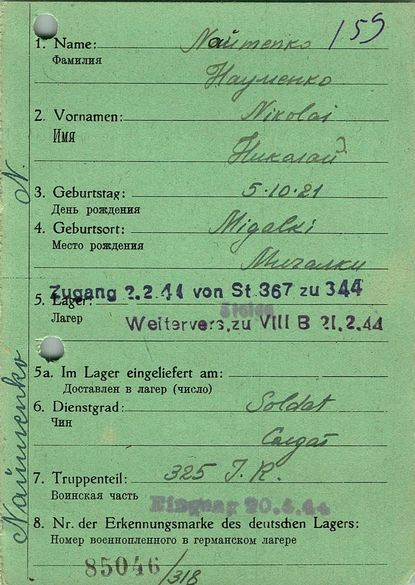 159
1. Name: Naumenko
Фамилия Науменко
2. Vornamen: Nikolai
Имя Николай
3. Geburtstag: 5.10.21
День рождения
4. Geburtsort: Migalki
Место рождения Мигалки
Zugang 2.2.44 von St. 367 zu 344
5. Lager:
Лагер
Weitervers. zu VIII B 21.2.44
5a. Im Lager eingeliefert am:
Доставлен в лагер (число)
6. Dienstgrad: Soldat
Чин Солдат
7. Truppenteil: 325 I.R.
Воинская часть
Eingang 20.4.44
8. Nr. der Erkennungsmarke des deutschen Lagers:
Номер военнопленного в германском лагере
85046/318
Naumenko N.